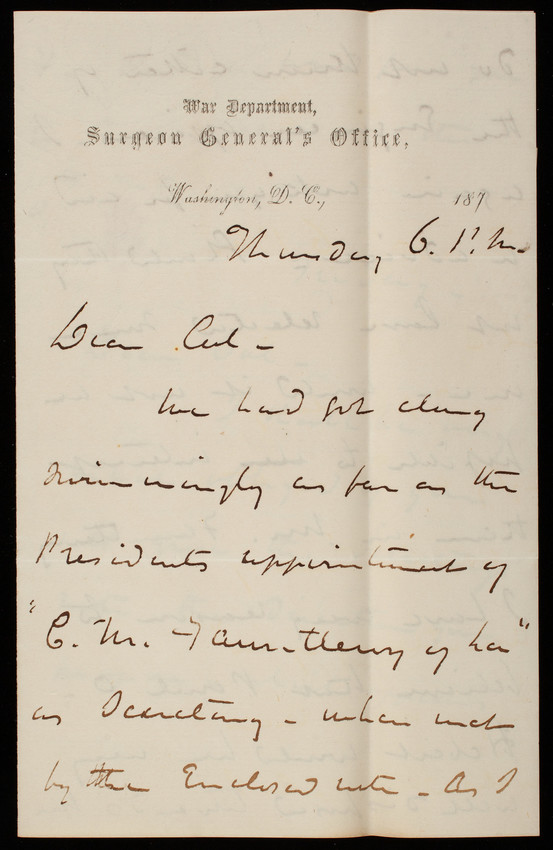 War Department,
Surgeon General's Office,
Washington, D. C., 187
Thursday 6. P. M.
Dear Col -
We had got along
swimmingly as far as the
Presidents appointment of
"C. M. of La"
as Secretary - when met
by the Enclosed note - As I